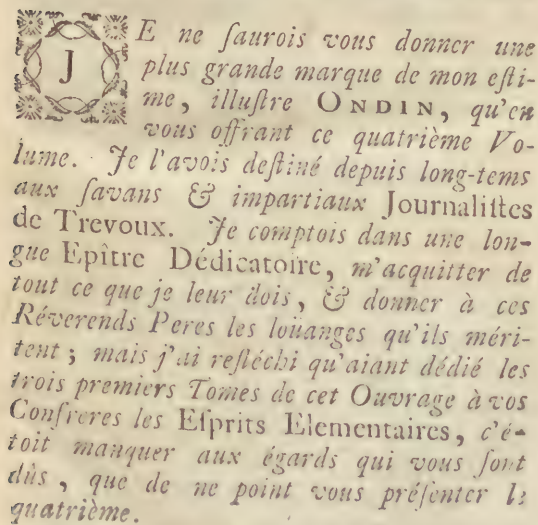 JE ne ſaurois vous donner une
plus grande marque de mon eſti-
me, illuſtre ONDIN, qu'en
vous offrant ce quatrième Vo-
lume. Je l'avois deſtiné depuis long-tems
aux ſavans & impartiaux Journaliſtes
de Trevoux. Je comptois dans une lon-
gue Epître Dédicatoire, m'acquitter de
tout ce que je leur dois, & donner à ces
Réverends Peres les loüanges qu'ils méri-
tent; mais j'ai refléchi qu'aiant dédié les
trois premiers Tomes de cet Ouvrage à vos
Confreres les Eſprits Elementaires, c'é-
toit manquer aux égards qui vous ſont
dûs, que de ne point vous préſenter le
quatrième.